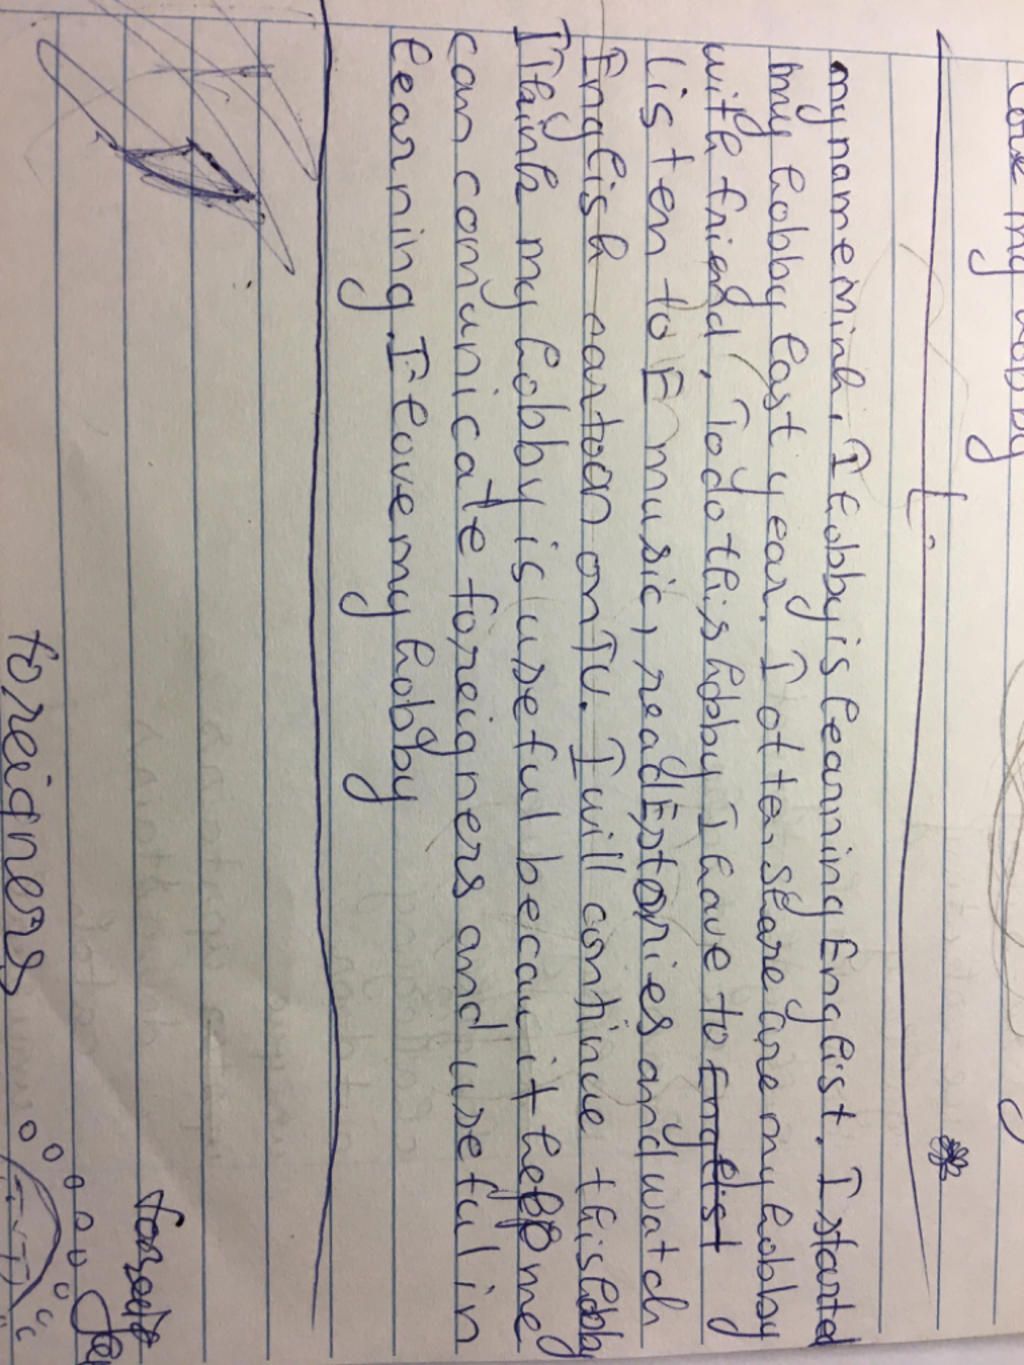 my hobby
my name Minh. I hobby is learning Englist. I started
my hobby last year. I often share are my hobby
with friend, To do this hobby I have to Englist
listen to E music, read Estories and watch
English cartoon on TV. I will continue this hobby
I think my hobby is useful becau it help me
can comunicate foreigners and useful in
learning. I love my hobby
foreigners